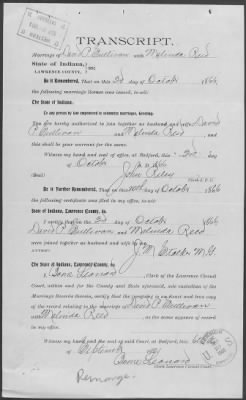 TRANSCRIPT.
Marriage of David P Sullivan with Melinda Reed
State of Indiana,
LAWRENCE COUNTY, } ss:
Be it Remembered, That on this 3d day of October 1866
the following marriage license was issued, to-wit:
The State of Indiana,
To any person by law empowered to solemnize marriages, Greeting:
You are hereby authorized to join together as husband and wife David
P Sullivan and Melinda Reed and
this shall be your warrant for the same.
Witness my hand and seal of office, at Bedford, this 3d
day of October 1866
(Seal) John Riley
Be it Further Remembered, That on day of October 1866
the following certificate was filed in my office, to-wit:
State of Indiana, Lawrence County, ss:
I certify that on the 3d day of October 1866
David P Sullivan and Melinda Reed
were joined together as husband and wife by
me
J M Stalker M.G.
The State of Indiana, Lawrence County, ss:
Clerk of the Lawrence Circuit
Court, within and for the County and State aforesaid, sole custodian of the
Marriage Records therein, certify that the foregoing is an exact and true copy
of the record relating to the marriage of David P Sullivan
and Melinda Reed, as the same appears of record
in my office.
Witness my hand and the seal of said Court, at Bedford, this
day of
Clerk Lawrence Circuit Court.